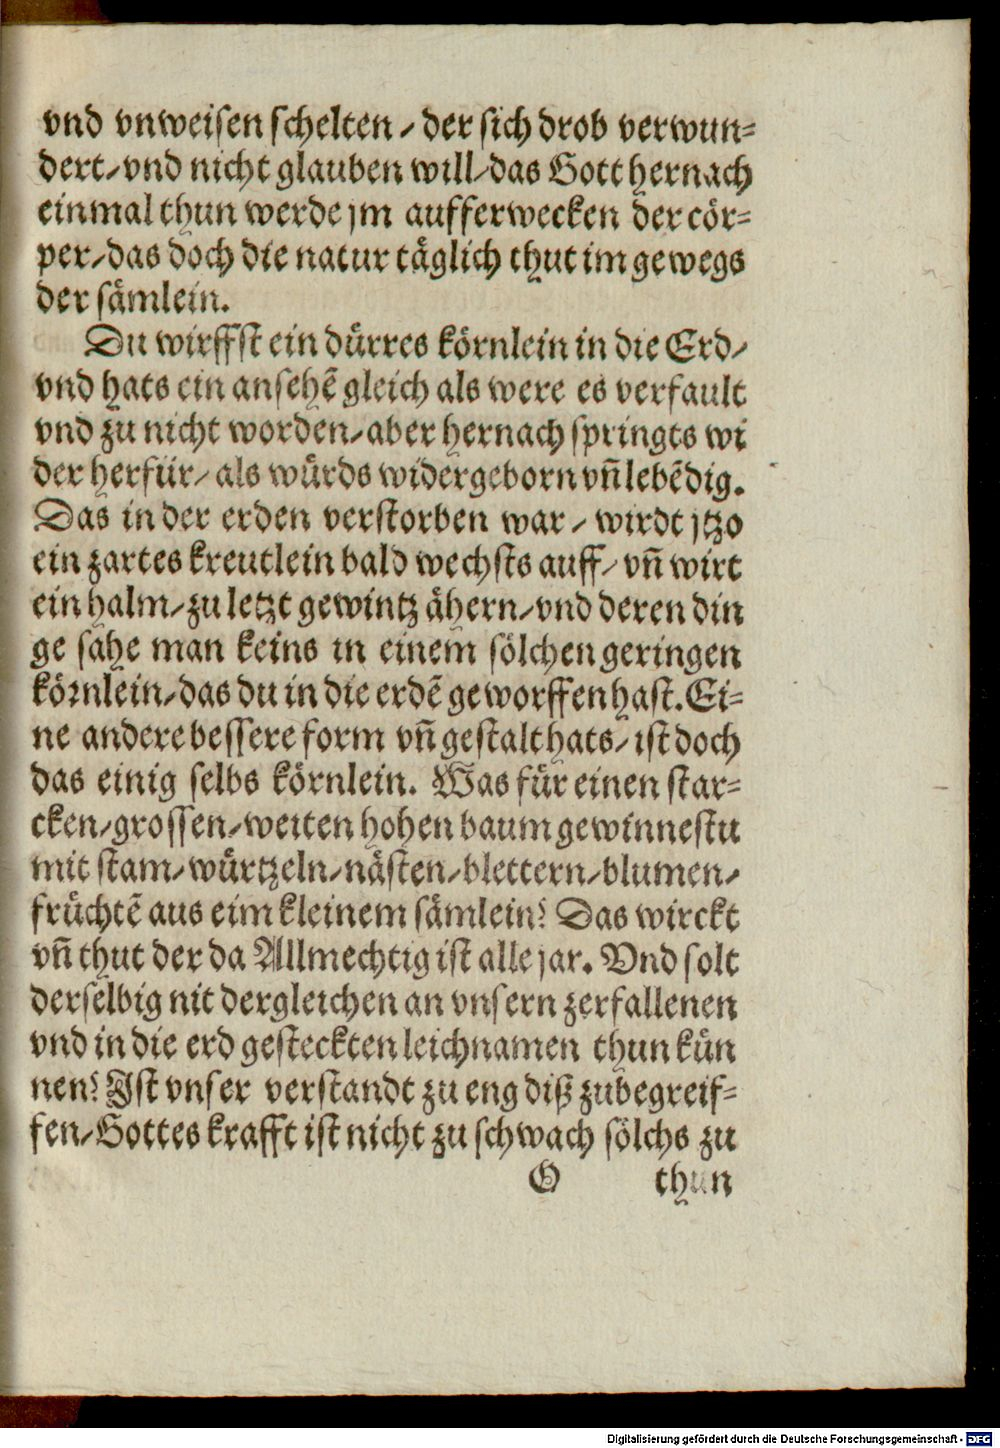 vnd vnweisen schelten / der sich drob verwun=
dert/vnd nicht glauben will/das Gott hernach
einmal thun werde jm aufferwecken der cör=
per/das doch die natur täglich thut im gewegs
der sämlein.
Du wirffst ein dürres körnlein in die Erd/
vnd hats ein ansehẽ gleich als were es verfault
vnd zu nicht worden/aber hernach springts wi
der herfür/ als würds widergeborn vñ lebẽdig.
Das in der erden verstorben war / wirdt jtzo
ein zartes kreutlein bald wechsts auff/ vñ wirt
ein halm/zu letzt gewintz ähern/vnd deren din
ge sahe man keins in einem sölchen geringen
körnlein/das du in die erdẽ geworffen hast. Ei=
ne andere bessere form vñ gestalt hats/ist doch
das einig selbs körnlein. Was für einen star=
cken/grossen/weiten hohen baum gewinnestu
mit stam/würtzeln/nästen/blettern/blumen/
früchtẽ aus eim kleinem sämlein? Das wirckt
vñ thut der da Allmechtig ist alle jar. Vnd solt
derselbig nit dergleichen an vnsern zerfallenen
vnd in die erd gesteckten leichnamen thun kün
nen? Ist vnser verstandt zu eng diß zubegreif=
fen/Gottes krafft ist nicht zu schwach sölchs zu
G thun
Digitalisierung gefördert durch die Deutsche Forschungsgemeinschaft - DFG